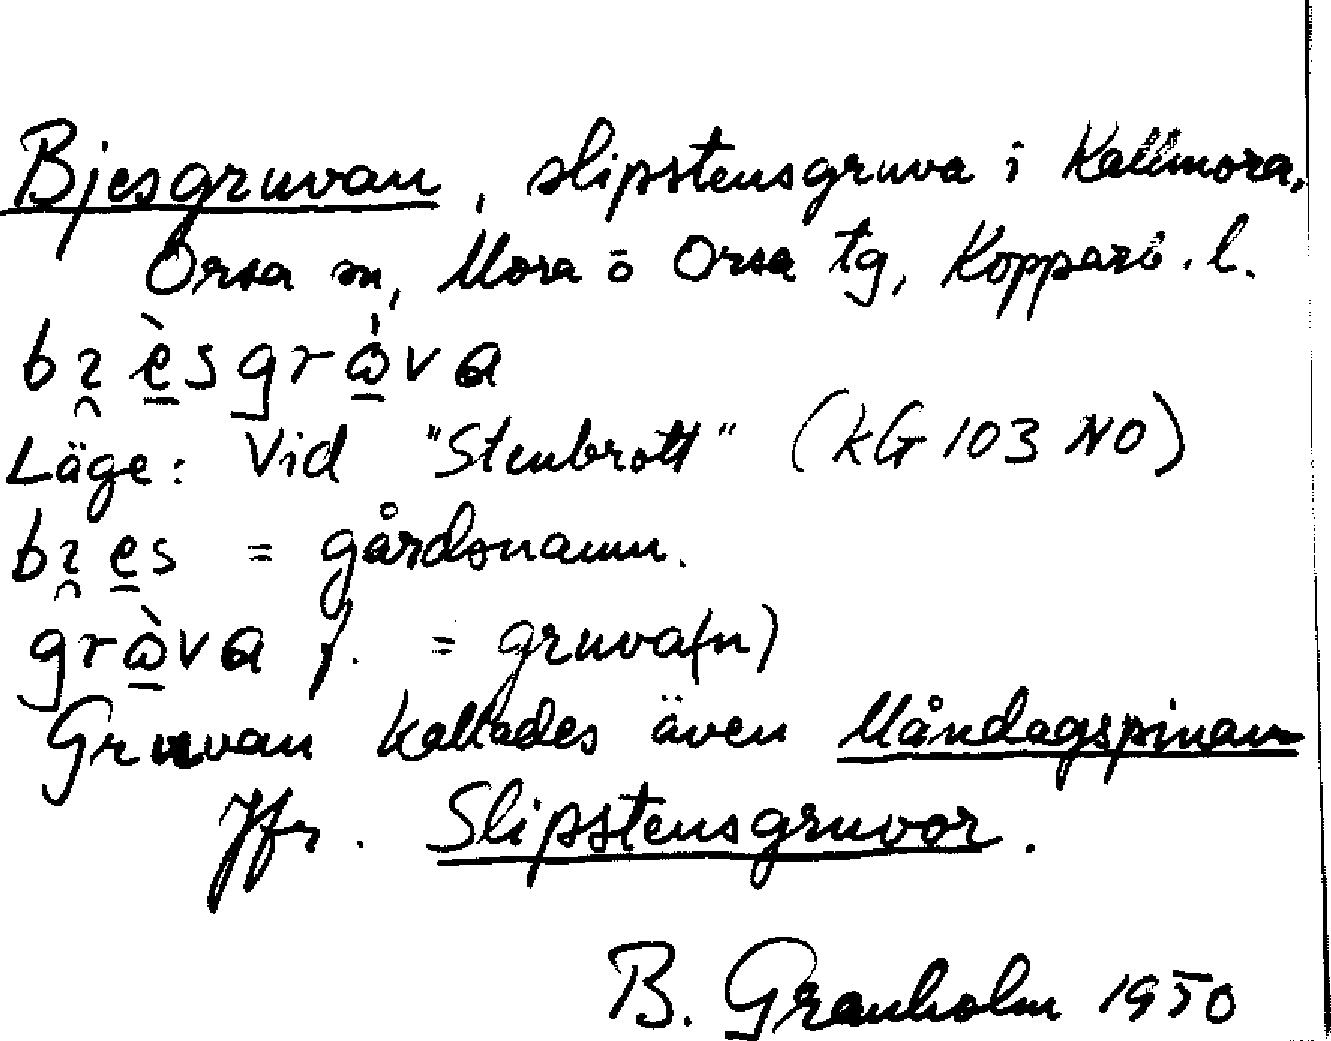 Bjesgruvan, slipstensgruva i Kallmora,
Orsa sn, Mora o Orsa tg, Kopparb. l.
bɿ̯è̱sgrὼ̱va
Läge: Vid "Stenbrott" (KG 103 NO)
bɿ̯e̱s = gårdsnamn.
grὼ̱va f. = gruva(n)
Gruvan kallades även Måndagspinan
Jfr. Slipstensgruvor.
B. Granholm 1950